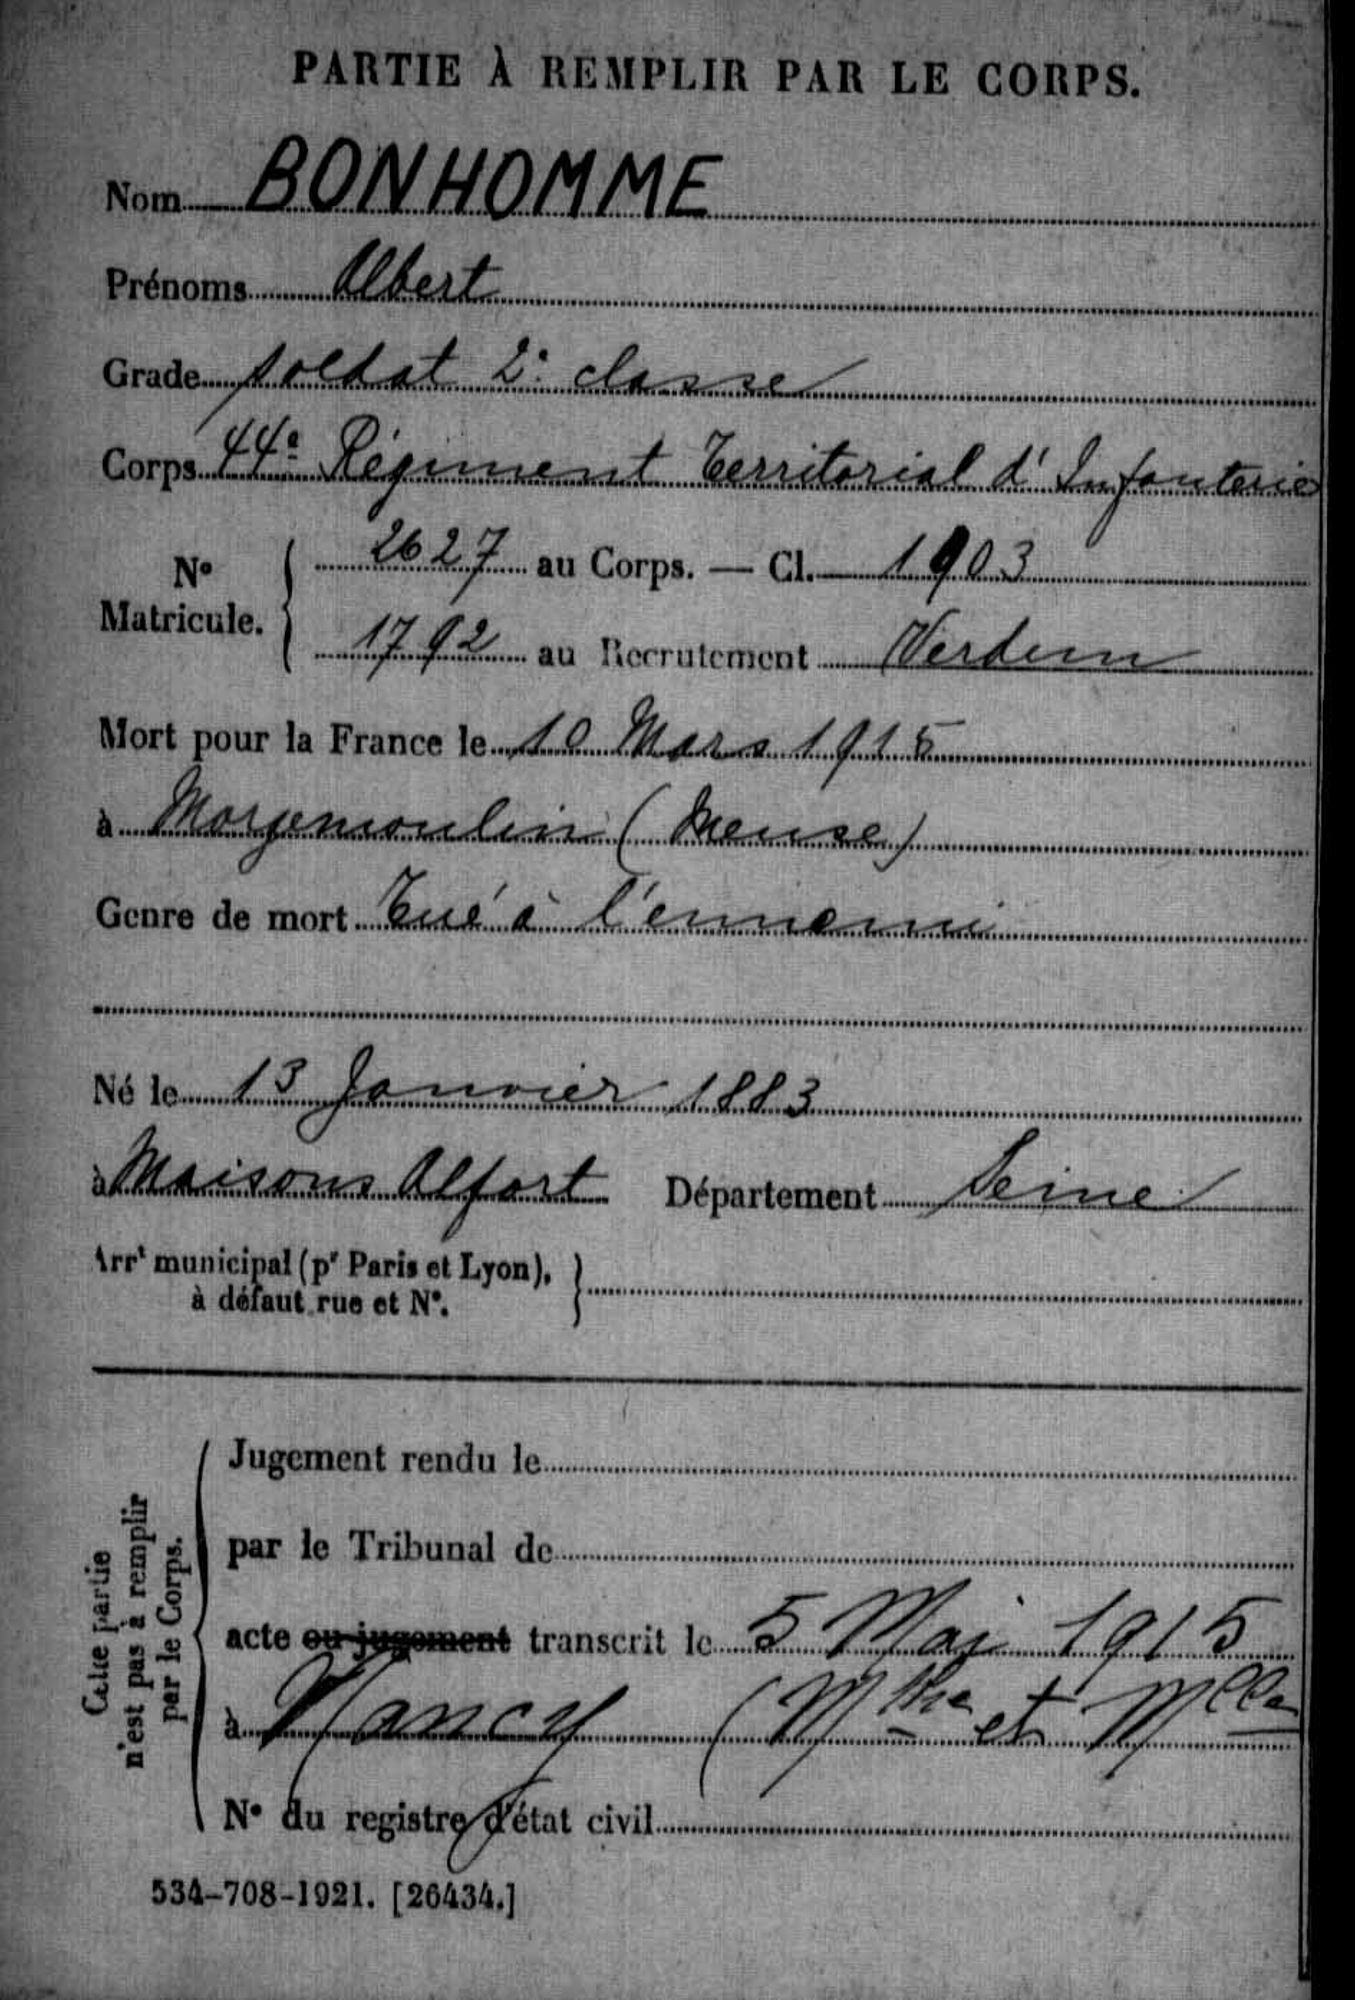 PARTIE À REMPLIR PAR LE CORPS.
Nom BONHOMME
Prénoms Albert
Grade soldat 2e classe
Corps 44e Régiment Territorial d'Infanterie
No Matricule. { 2627 au Corps. — Cl. 1903
1792 au Recrutement Verdun
Mort pour la France le 10 Mars 1915
à Morgemoulin (Meuse)
Genre de mort Tué à l'ennemi
Né le 13 Janvier 1883
à Maisons Alfort Département Seine
Arrt municipal (pr Paris et Lyon), }
à défaut rue et No.
Cette partie
n'est pas à remplir
par le Corps.
Jugement rendu le
par le Tribunal de
acte ou jugement transcrit le 5 Mai 1915
à Nancy (Mthe et Mlle
No du registre d'état civil
534-708-1921. [26434.]